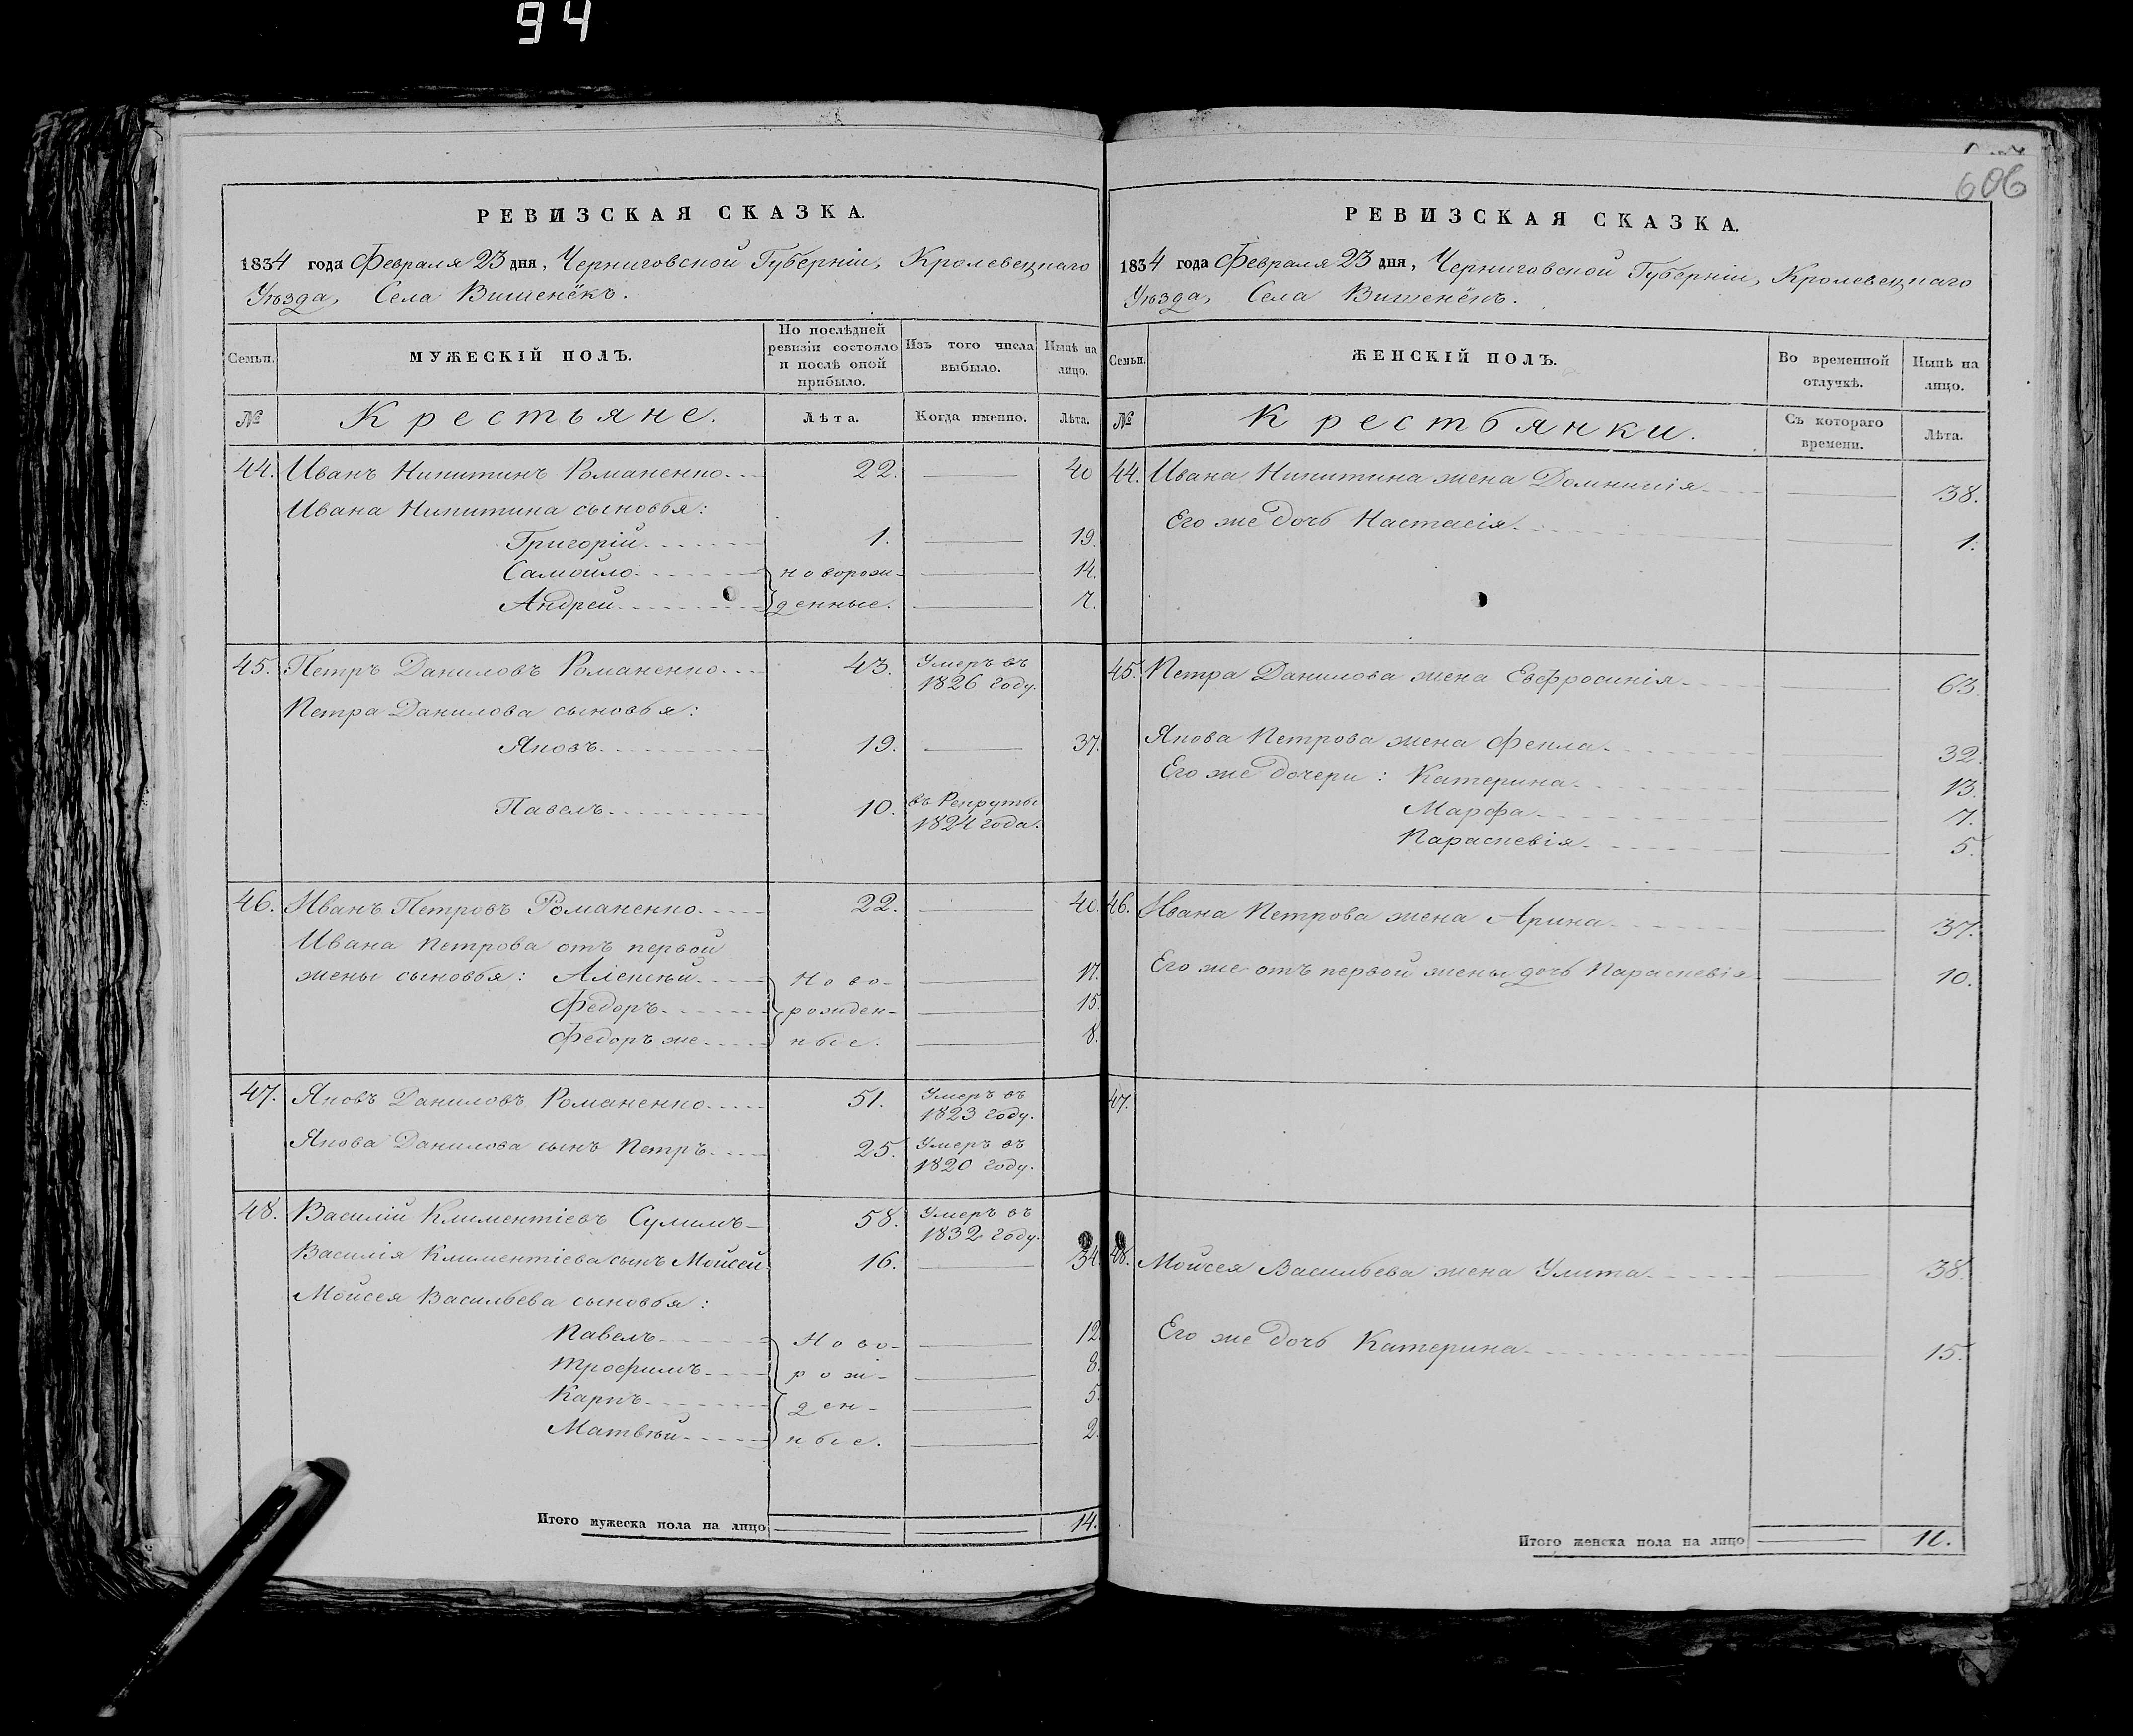 94
606
РЕВИЗСКАЯ СКАЗКА.
1834 года Февраля 23 дня, Черниговской Губерніи, Кролевецкаго
Уѣзда, Села Вишенёкъ.
Семьи. МУЖЕСКІЙ ПОЛЪ. По послѣдней ревизіи состояло и послѣ оной прибыло. Изъ того числа выбыло. Нынѣ на лицо.
№ Крестьяне. Лѣта. Когда именно. Лѣта.
44. Иванъ Никитинъ Романенко 22. 40
Ивана Никитина сыновья:
Григорій 1. 19.
Самойло новорож- 14.
Андрей денные. 7.
45. Петръ Даниловъ Романенко 43. Умеръ въ 1826 году.
Петра Данилова сыновья:
Яковъ 19. 37.
Павелъ 10. въ Рекруты 1824 года.
46. Иванъ Петровъ Романенко 22. 40.
Ивана Петрова отъ первой
жены сыновья: Алексѣй Ново- 17.
Федоръ рожден- 15.
Федоръ же ные. 8.
47. Яковъ Даниловъ Романенко 51. Умеръ въ 1823 году.
Якова Данилова сынъ Петръ 25. Умеръ въ 1820 году.
48. Василій Климентіевъ Сулимъ 58. Умеръ въ 1832 году.
Василія Климентіева сынъ Мойсей 16. 34.
Мойсея Васильева сыновья:
Павелъ Ново- 12.
Трофимъ рож- 8.
Карпъ ден- 5.
Матвѣй ные. 2.
Итого мужеска пола на лицо 14.
РЕВИЗСКАЯ СКАЗКА.
1834 года Февраля 23 дня, Черниговской Губерніи, Кролевецкаго
Уѣзда, Села Вишенёкъ.
Семьи. ЖЕНСКІЙ ПОЛЪ. Во временной отлучкѣ. Нынѣ на лицо.
№ Крестьянки. Съ котораго времени. Лѣта.
44. Ивана Никитина жена Домникія 38.
Его же дочь Настасія. 1.
45. Петра Данилова жена Евфросинія 63.
Якова Петрова жена Фекла 32.
Его же дочери: Катерина 13.
Марфа 7.
Параскевія 5.
46. Ивана Петрова жена Арина 37.
Его же отъ первой жены дочь Параскевія 10.
47.
48. Мойсея Васильева жена Улита 38.
Его же дочь Катерина 15.
Итого женска пола на лицо 11.